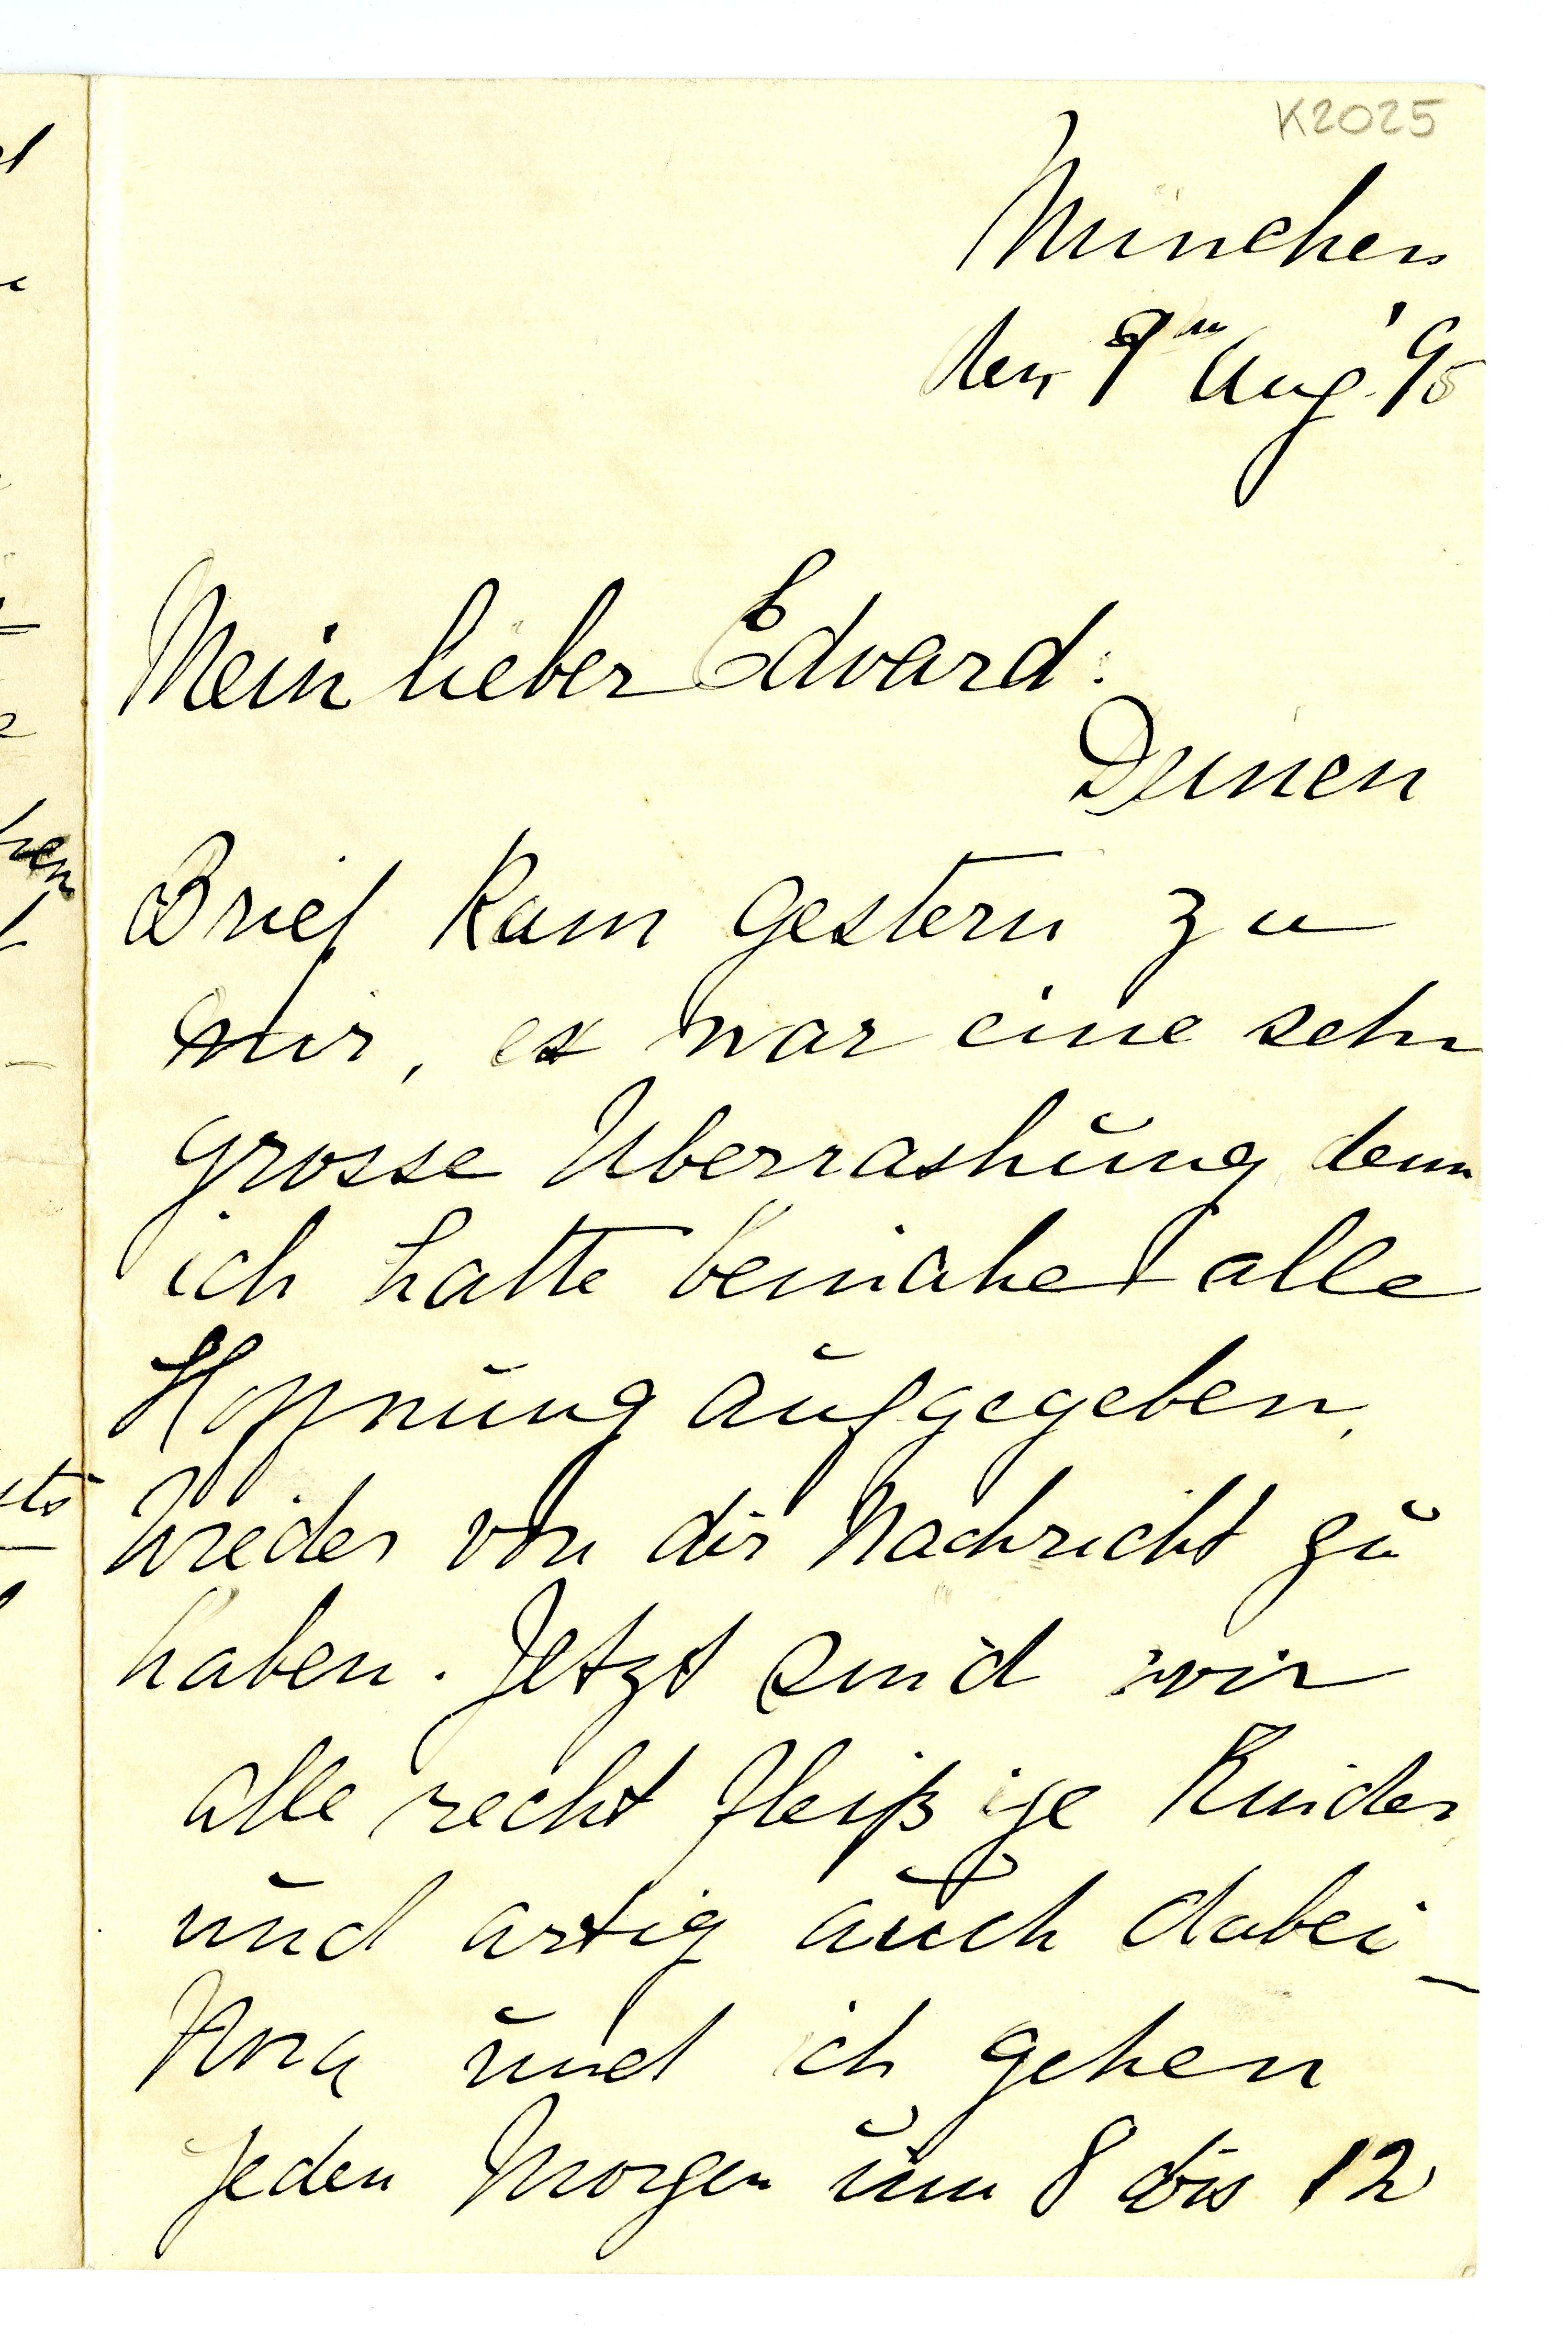 K2025
München
den 9ten Aug. '95
Mein lieber Edvard:
Deinen
Brief kam gestern zu
mir, es war eine sehr
grosse Uberrashung denn
ich hatte beinahe alle
Hoffnung aufgegeben,
wieder von dir Nachricht zu
haben. Jetzt sind wir
alle recht fleißige Kinder
und artig auch dabei_
und ich gehen
jeden Morgen um 8 bis 12